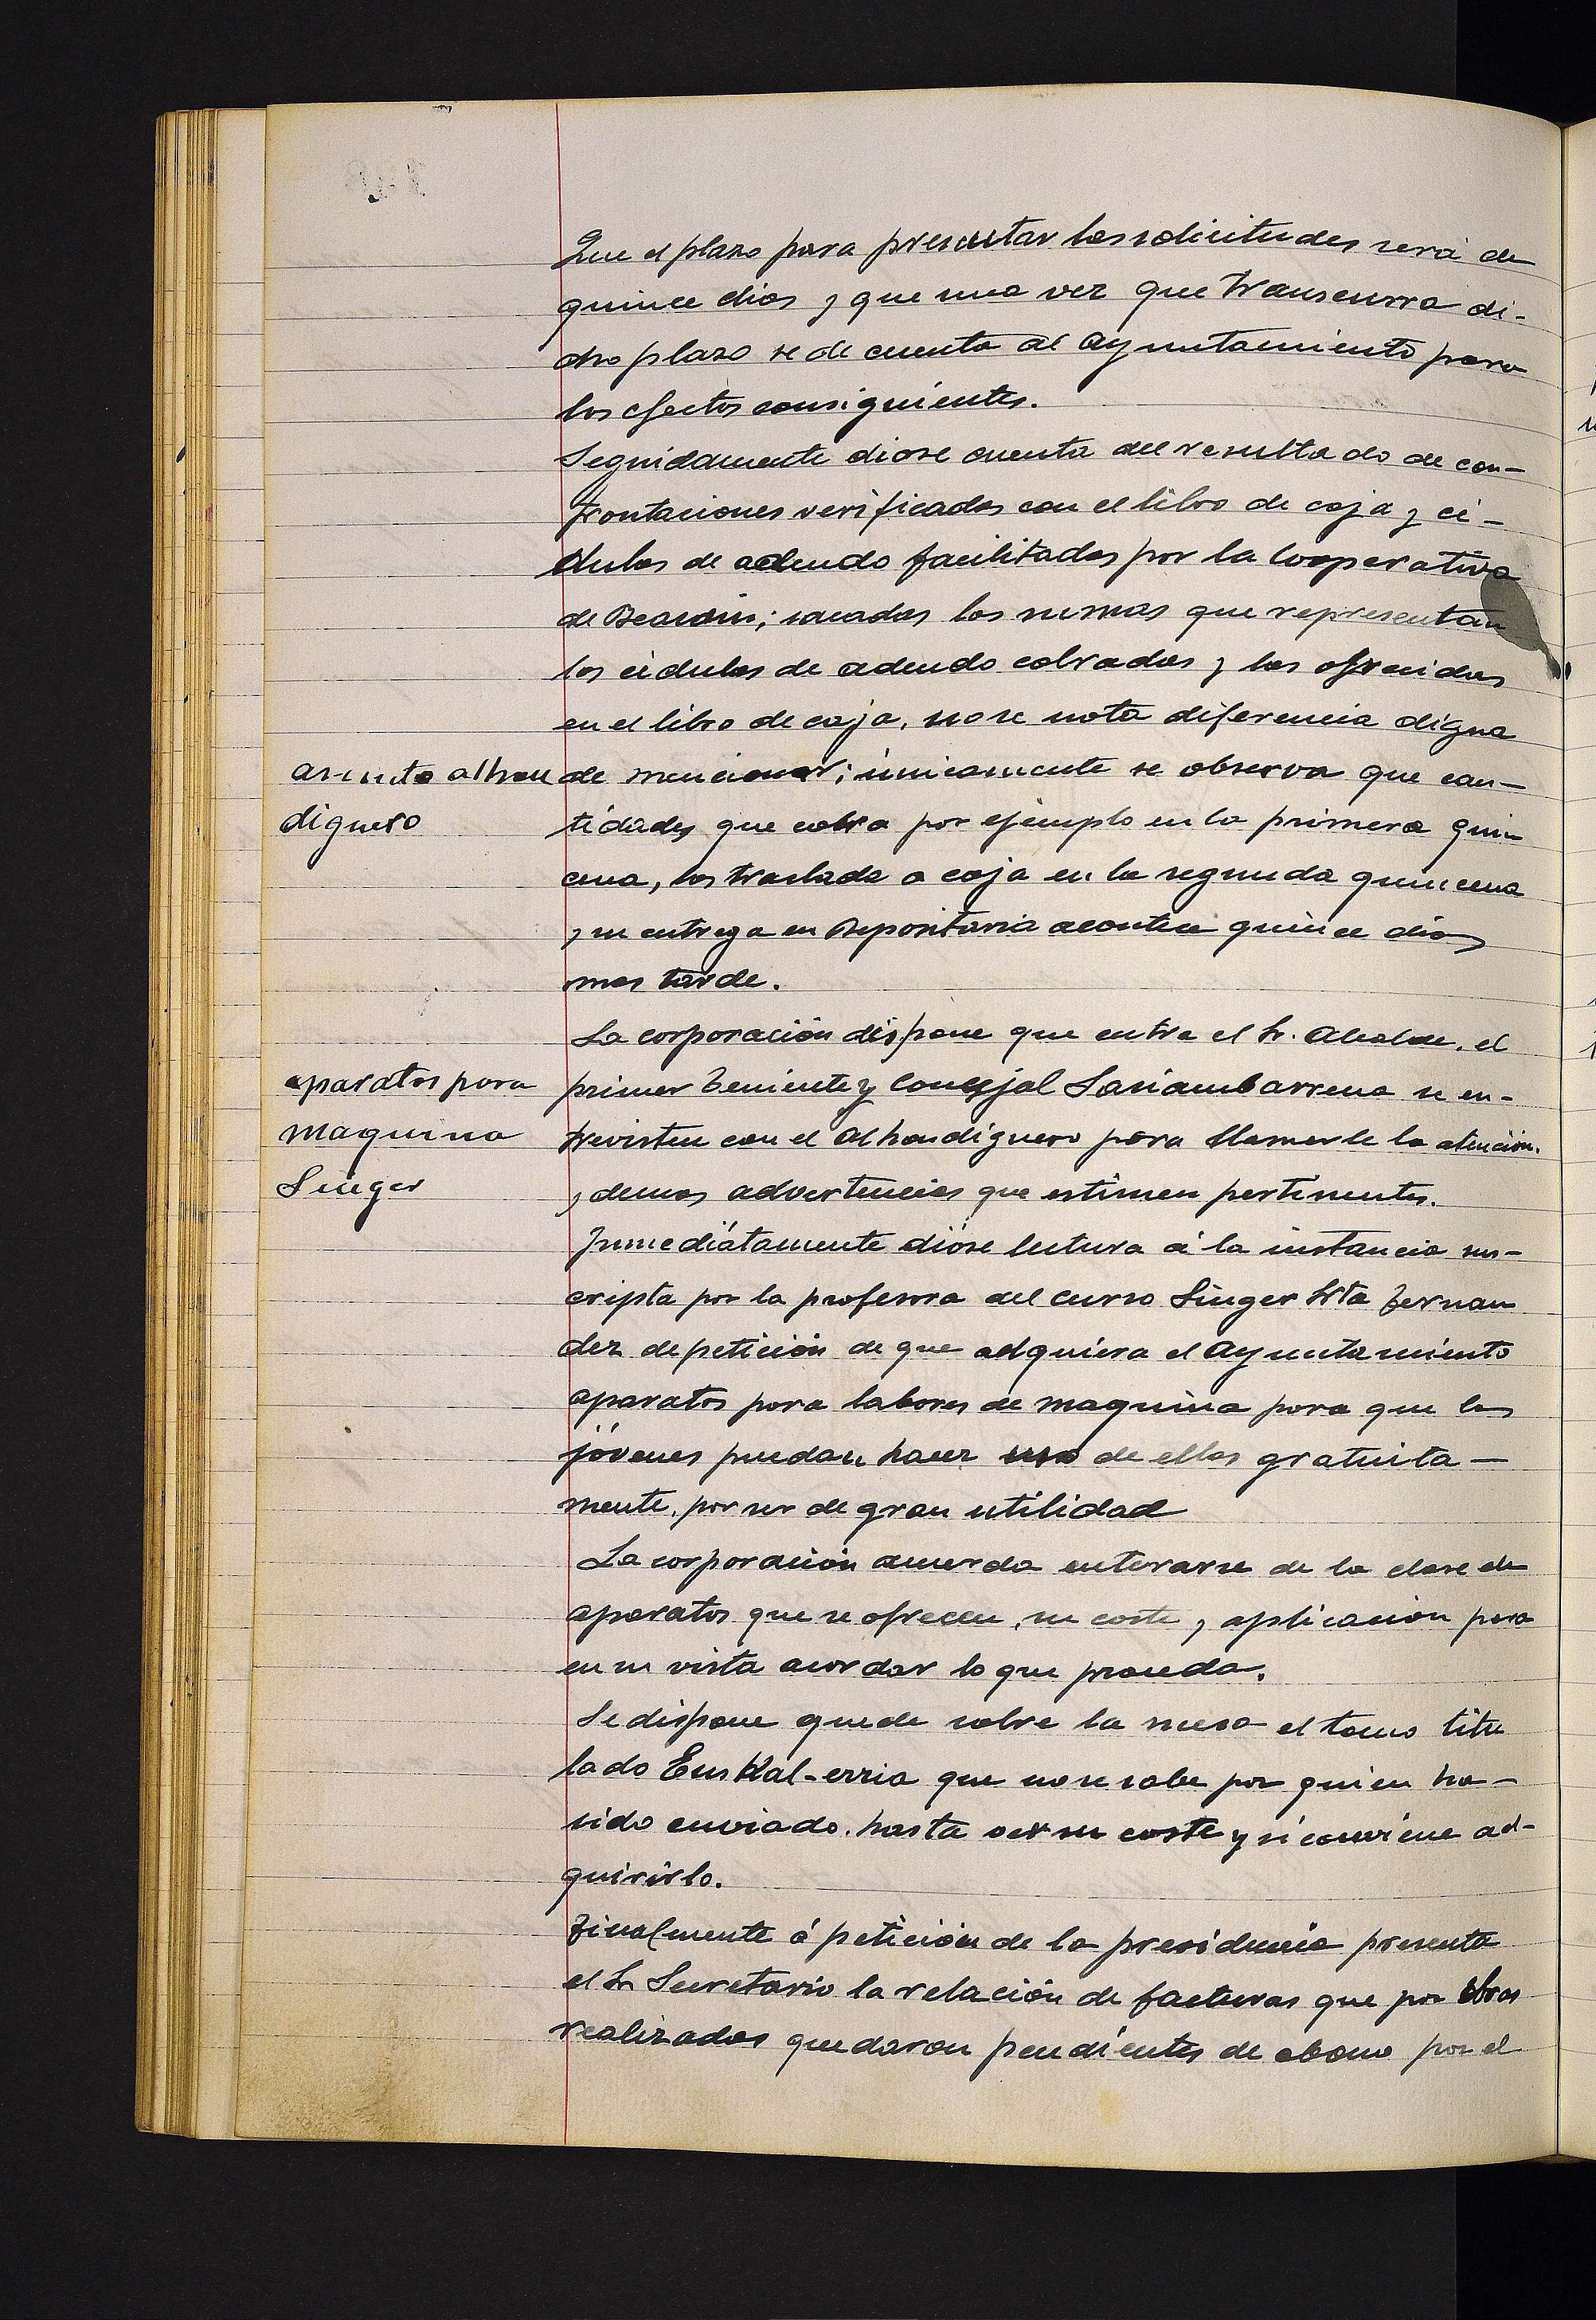 Que el plazo para presentar las solicitudes será de
quince dias y que una vez que transcurra di-
cho plazo se de cuenta al Ayuntamiento para
los efectos consiguientes.
Seguidamente diose cuenta del resultado de con-
frontaciones verificadas con el libro de caja y cé-
dulas de adeudo facilitadas por la Cooperativa
de Beasain; sacadas las sumas que representan
las cédulas de adeudo cobradas y las ofrecidas
en el libro de caja, no se nota diferencia digna
asunto alhon
diguero
de mencionar; únicamente se observa que can-
tidades que cobra por ejemplo en la primera quin
cena, las traslada a caja en la segunda quincena
y su entrega en Depositaria acontece quince dias
mas tarde.
La corporación dispone que entre el Sr. Alcalde, el
aparatos para
maquina
Singer
primer Teniente y Concejal Sariambarrena se en-
trevisten con el Alhondiguero para llamarle la atención
y demas advertencias que estimen pertinentes.
Inmediátamente dióse lectura á la instancia sus-
cripta por la profesora del curso Singer Srta Fernan
dez de petición de que adquiera el Ayuntamiento
aparatos para labores de maquina para que las
jóvenes puedan hacer uso de ellos gratuita-
mente, por ser de gran utilidad
La corporación acuerda enterarse de la clase de
aparatos que se ofrecen, su coste y aplicación para
en su vista acordar lo que proceda.
Se dispone quede sobre la mesa el tomo titu
lado Euskal-erria que no se sabe por quien ha-
sido enviado, hasta ver su coste y si conviene ad-
quirirlo.
Finalmente á petición de la presidencia presenta
el Sr Secretario la relación de facturas que por obras
realizadas quedaron pendientes de abono por el